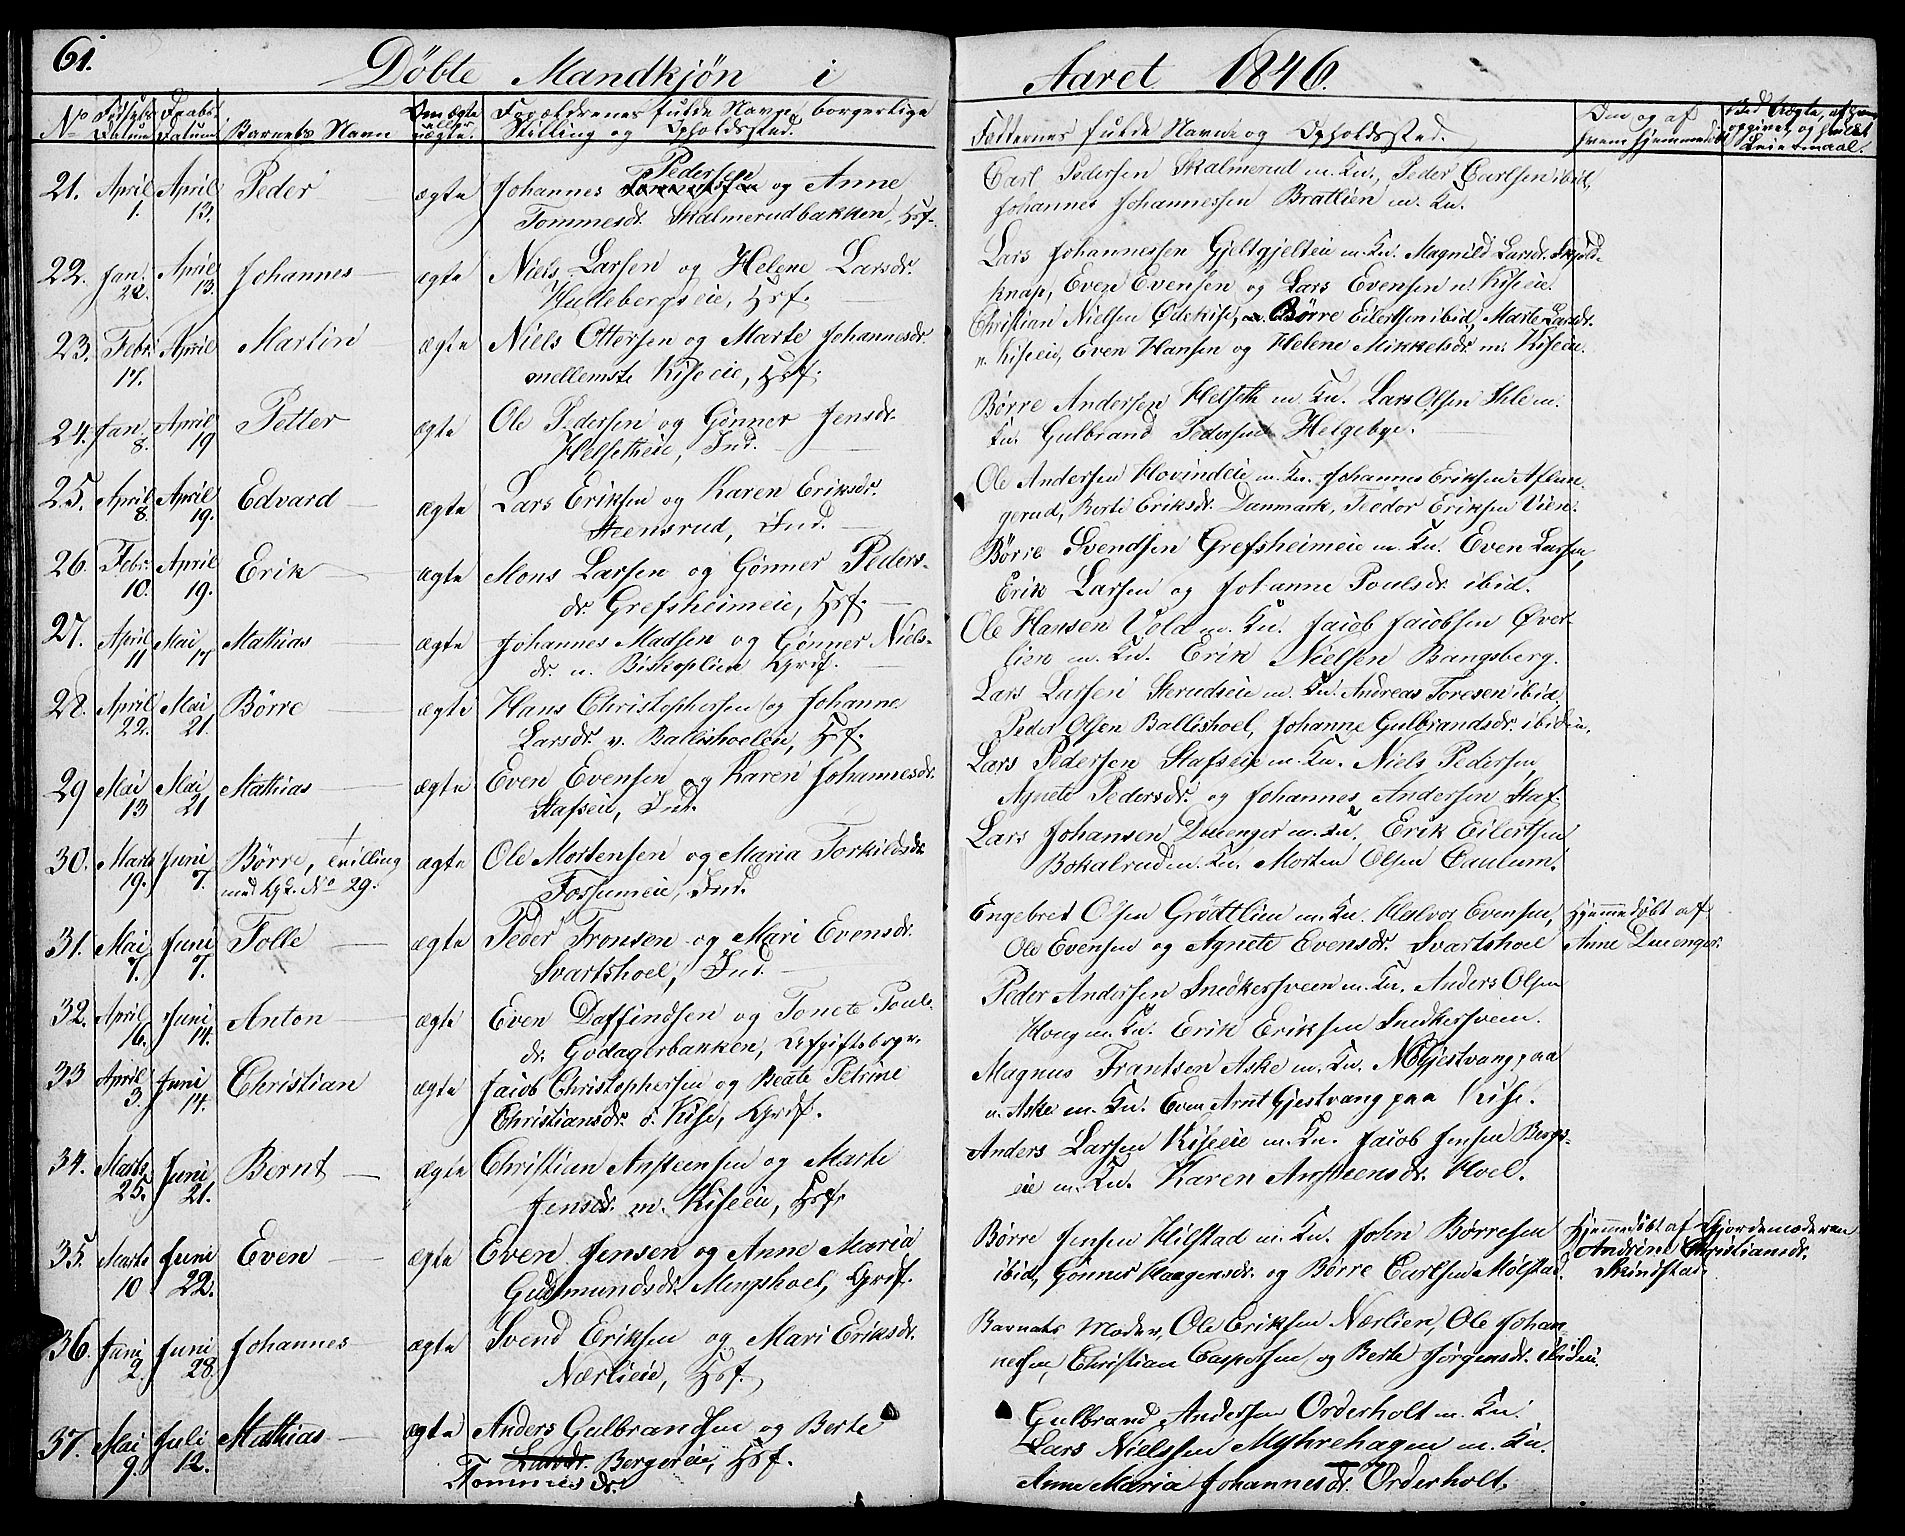 61. Döbte Mandkjøn i Aaret 1846.
No Fødsels Datum Daabs Datum Barnets Navn Om ægte eller uægte. Forældrenes fulde Navne, borgerlige Stilling og Opholdssted. Faddernes fulde Navne og Opholdssted. Om og af hvem hjemmedøbt
21. April 1. April 13. Peder ægte Johannes Pedersen og Anne
Tommesdr. Skalmerudbakken, Hsf.
Carl Pedersen Skalmerud m. Kn., Peder Carlsen ibid,
Johannes Johannessen Bratlien m. Kn.
22. Jan. 22. April 13. Johannes ægte Niels Larsen og Helene Larsdr.
Hullebergseie, Hsf.
Lars Johannessen Gjeltgjelteie m. Kn. Magnild Larsdr. Skjold-
knap, Even Evensen og Lars Evensen n. Kiseie.
23. Febr. 17. April Martin ægte Niels Ottersen og Marte Johannesdr.
mellemste Kiseie, Hsf.
Christian Nielsen Ødekise, Børre Eilertsen ibid, Marte Larsdr.
n. Kiseie, Even Hansen og Helene Mikkelsdr. m. Kiseie.
24. Jan. 8. April 19 Petter ægte Ole Pedersen og Gønner Jensdr.
Helsetheie, Ind.
Børre Andersen Helseth m. Kn. Lars Olsen Ihle m.
Kn. Gulbrand Pedersen Helgebye.
25. April 8. April 19. Edvard ægte Lars Eriksen og Karen Eriksdr.
Steensrud, Ind.
Ole Andersen Hovindeie m. Kn. Johannes Eriksen Aslun-
gerud, Berte Eriksdr. Danmark, Teodor Eriksen Vien.
26. Febr. 10. April 19. Erik ægte Mons Larsen og Gønner Peders-
dr. Grefsheimeie, Hsf.
Børre Svendsen Grefsheimeie m. Kn. Even Larsen,
Erik Larsen og Johanne Poulsdr. ibid.
27. April 11 Mai 17 Mathias ægte Johannes Madsen og Gønner Niels-
dr. n. Biskoplien Grf.
Ole Hansen Vold m. Kn. Jacob Jacobsen Øver-
lien m. Kn. Erik Nielsen Bangsberg.
28. April 22. Mai 21. Børre ægte Hans Christophersen og Johanne
Larsdr. v. Ballishoeleie, Hsf.
Lars Larsen Sterudseie m. Kn. Andreas Toresen ibid,
Peder Olsen Ballishoel, Johanne Gulbrandsdr. ibideie.
29 Mai 13 Mai 21 Mathias ægte Even Evensen og Karen Johannesdr.
Stafseie, Ind.
Lars Pedersen Stafseie m. Kn. Niels Pedersen,
Agnete Pedersdr. og Johannes Andersen Staf.
30. Marts 19. Juni 7. Børre, tvilling
med Kjk. No 29. ægte Ole Mortensen og Maria Torkildsdr.
Fossumeie, Ind.
Lars Johansen Duenger m. Kn. Erik Eilertsen
Bokalrud m. Kn. Morten Olsen Caulum.
31. Mai 7. Juni 7. Tolle ægte Peder Tronsen og Mari Evensdr.
Svartshoel, Ind.
Engebret Olsen Grödtlien m. Kn. Halvor Evensen,
Ole Evensen og Agnete Evensdr. Svartshoel
Hjemmedøbt af
Anne Duenger.
32. April 16. Juni 14. Anton ægte Even Daffindsen og Tonete Pouls-
dr. Godagerbakken, Afgiftsbrgr.
Peder Andersen Snedkersveen m. Kn. Anders Olsen
Houg m. Kn. Erik Eriksen Snedkersveen.
33 April 3. Juni 14. Christian ægte Jacob Christophersen og Beate Petrine
Christiansdr. ö. Kise, Grdf.
Magnus Frantsen Aske m. Kn. N. Gjestvang paa
n. Aske m. Kn. Even Arnt Gjestvang paa Kise.
34. Marts 25. Juni 21. Bernt ægte Christian Ansteensen og Marte
Jensdr. m. Kiseeie, Hsf.
Anders Larsen Kiseeie m. Kn. Jacob Jensen Bergs-
eie m. Kn. Karen Ansteensdr. Hoel.
35. Marts 10 Juni 22. Even ægte Even Jensen og Anne Maria
Gudmundsdr. Mengshoel, Grdf.
Børre Jensen Hilstad m. Kn. John Børresen
ibid, Gønner Haagensdr. og Børre Carlsen Molstad.
Hjemmedöbt af Gjordemoderen
Andrine Christiansdr.
Skindstad.
36. Juni 2. Juni 28. Johannes ægte Svend Eriksen og Mari Eriksdr.
Nærlieie, Hsf.
Barnets Moder, Ole Eriksen Nærlien, Ole Johan
nesen, Christian Caspersen og Berte Jörgensdr. ibideie.
37. Mai 9. Juli 12. Mathias ægte Anders Gulbrandsen og Berte
Larsdr. Bergereie, Hsf.
Tommesdr.
Gulbrand Andersen Orderholt m. Kn.
Lars Nielssen Myhrehagen m. Kn.
Anne Maria Johannesdr. Orderholt.